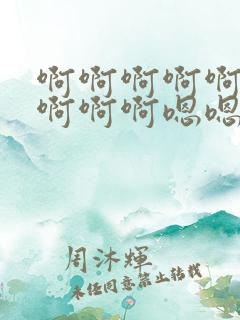 啊啊啊啊啊
啊啊啊嗯嗯
周沐輝
未经同意禁止转载